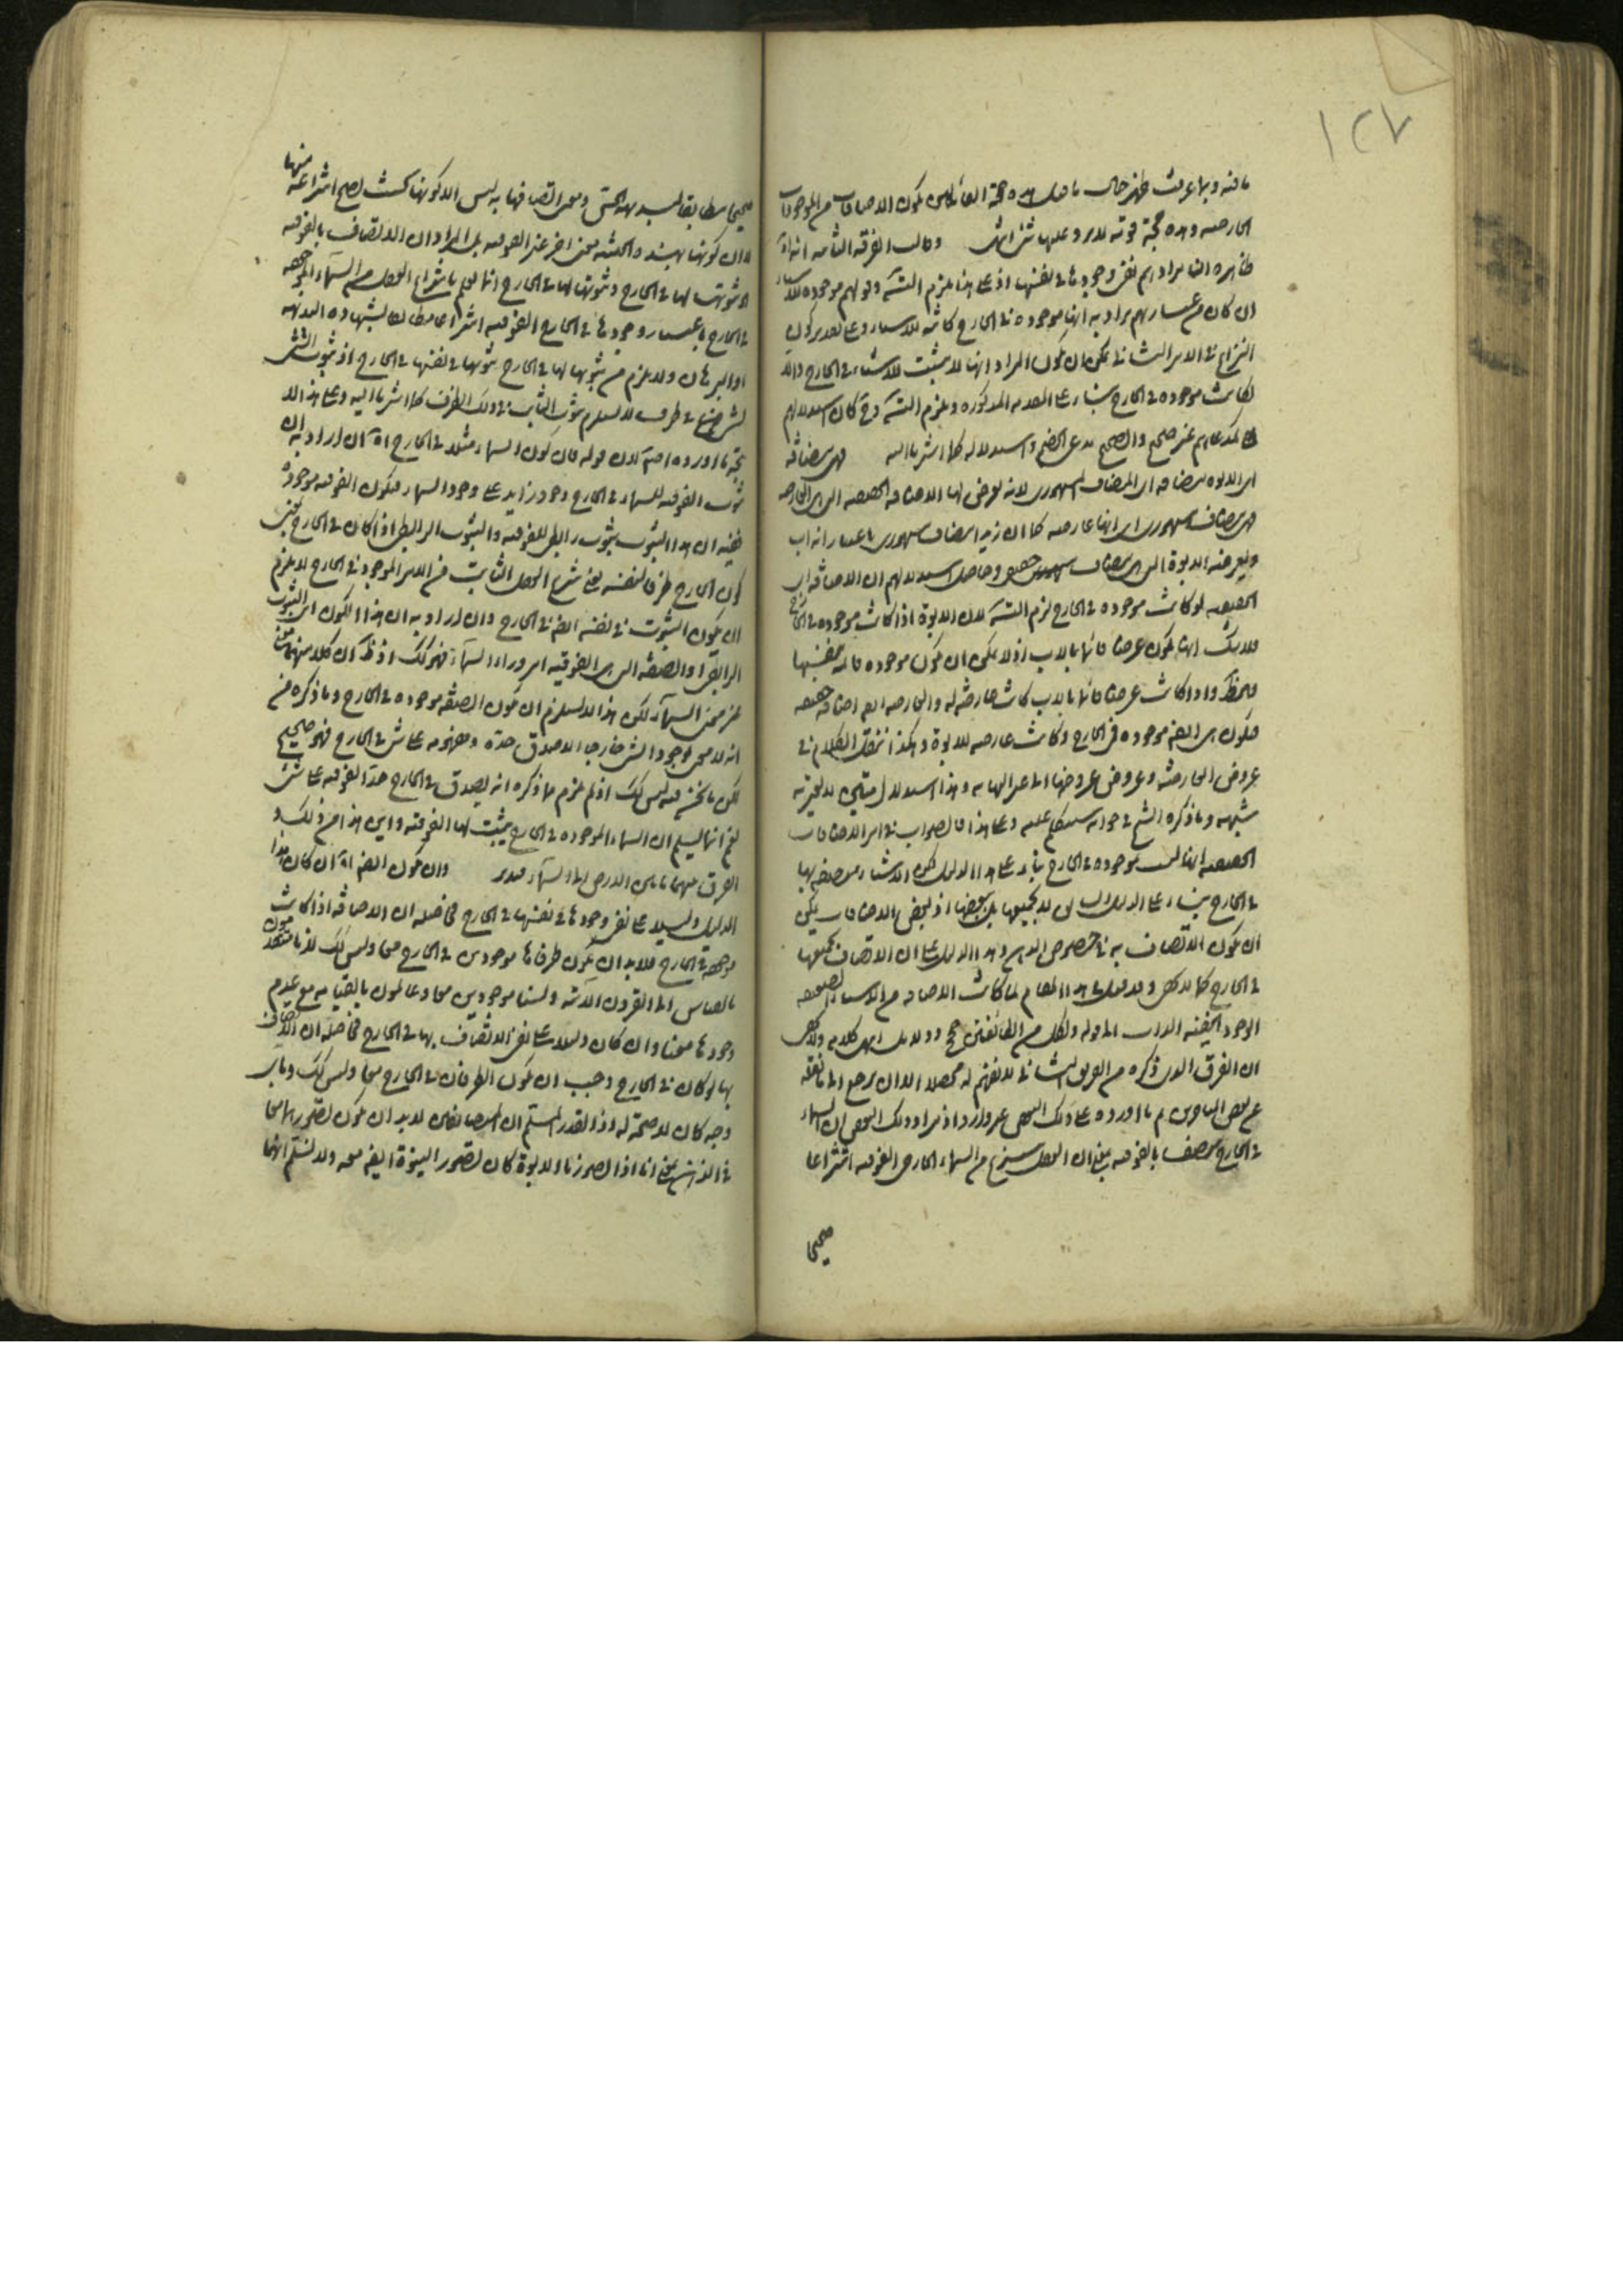 ١٢٧
ما فيه وبما عرفت ظهر حال ما قيل هذه حجة القائلين بكون الاضافات من الموجودات
الخارجية وهذه حجة قوية لا يرد عليها شئ انتهى وقالت الفرقة الثانية انه اه
ظاهره ان مرادهم نفى وجودها فى نفسها اذ على هذا يلزم التسه وقولهم موجودة للاشياء
ان كان من عباراتهم يراد به انها موجودة فى الخارج كائنة للاشياء وعلى تقدير كون
النزاع فى الامر الثانى يمكن ان يكون المراد انها لا يثبت للاشياء فى الخارج والا
لكانت موجودة فى الخارج بناء على المقدمة المذكورة ويلزم التسه وح كان استدلالهم
على مدعاهم غير صحيح والصحيح مدعى الخصم واستدلاله كما اشرنا اليه فهى مضافة
اى الابوة مضافة اى المضاف المشهورى لانه يعرض لها الاضافة الحقيقية التى هى العارضية
فهى مضاف مشهورى اى انها عارضة كما ان زيدا مضاف مشهورى باعتبار انه اب
ويعرضه الابوة التى هى مضاف حقيقى وحاصل استدلالهم ان الاضافة اى
الحقيقية لو كانت موجودة فى الخارج لزم التسه لان الابوة اذا كانت موجودة فى الخارج
فلا شك انها يكون عرضا قائما بالاب اذ لا يمكن ان يكون موجودة قائمة بنفسها
وهو ظ واذا كانت عرضا قائما بالاب كانت عارضة له والعارضية ايضا اضافة حقيقية
فيكون هى ايضا موجودة فى الخارج وكانت عارضة للابوة وهكذا ننقل الكلام فى
عروض العارضة وعروض عروضها الى غير النهاية وهذا استدلال متين لا يعتريه
شبهة وما ذكره الشيخ فى جوابه سنتكلم عليه وعلى هذا فالصواب فى امر الاضافات
الحقيقية انها ليست موجودة فى الخارج بناء على هذا الدليل لكن الاشياء متصفة بها
فى الخارج بناء على الدليل السابق لا بجميعها بل ببعضها اذ بعض الاضافات يمكن
ان يكون الاتصاف به فى خصوص الذهن وهذا الدليل على ان الاتصاف بجميعها
فى الخارج كما لا يخفى وقد قيل فى هذا المقام لما كانت الاضافة من الاشياء الضعيفة
الوجود الخفية الذات المقولة ولكل من الطائفتين حجج ودلائل انتهى كلامه ولا يخفى
ان الفرق الذى ذكره من الفريق الثانى لا نفهم له محصلا الا ان يرجع الى ما نقله
عن بعض المتأخرين ثم ما اورده على ذلك البعض غير وارد اذ مراد ذلك البعض ان السماء
فى الخارج متصف بالفوقية بمعنى ان العقل ينتزع من السماء الخارجى الفوقية انتزاعا
صحيحا
صحيحا مطابقا لبديهة الحس ومعنى اتصافها به ليس الا كونها بحيث يصح انتزاعه منها
لا ان كونها بهذه الحيثية معنى اخر غير الفوقية بل المراد ان الاتصاف بالفوقية
او ثبوتها لها فى الخارج وثبوتها لها فى الخارج انما يعلم بانتزاع العقل من السماء الموجودة
فى الخارج باعتبار وجودها فى الخارج الفوقية انتزاعا مطابقا لشهادة البديهة
او البرهان ولا يلزم من ثبوتها لها فى الخارج ثبوتها فى نفسها فى الخارج اذ ثبوت الشئ
لشئ فى ظرف لا يستلزم ثبوت الثابت فى ذلك الظرف كما اشرنا اليه وعلى هذا لا
يتجه ما اورده اصلا لان قوله فان كون السماء مثلا فى الخارج اه ان اراد به ان
ثبوت الفوقية للسماء فى الخارج وجود زايد على وجود السماء فيكون الفوقية موجودة
ففيه ان هذا الثبوت ثبوت رابطى للفوقية والثبوت الرابطى اذا كان فى الخارج بمعنى
كون الخارج ظرفا لنفسه يعنى ينتزع العقل الثابت من الامر الموجود فى الخارج لا يلزم
ان يكون الثبوت فى نفسه ايضا فى الخارج وان اراد به ان هذا الكون اى الثبوت
الرابطى او الصفة التى هى الفوقية امر وراء السماء فهو كك اذ ظ ان كلا منهما معنى
غير معنى السماء لكن هذا لا يستلزم ان يكون الصفة موجودة فى الخارج وما ذكره من
انه لا معنى لوجود الشئ خارجا الا صدق حده ومفهومه على شئ فى الخارج فهو صحيح
لكن ما نحن فيه ليس كك اذ لم يلزم مما ذكره انه يصدق فى الخارج حد الفوقية على شئ
نعم انما يسلم ان السماء الموجودة فى الخارج يثبت لها الفوقية واين هذا من ذلك و
الفرق بينهما ما بين الارض الى السماء فتدبر وان يكون ايضا اه ان كان هذا
الدليل دليلا على نفى وجودها فى نفسها فى الخارج فحاصله ان الاضافة اذا كانت
موجودة فى الخارج فلا بد ان يكون طرفاها موجودين فى الخارج معا وليس كك لانا متقدمون
بالقياس الى القرون الاتية ولسنا موجودين معا وعالمون بالقيامة مع عدم
وجودها معنا وان كان دليلا على نفى الاتصاف بها فى الخارج فحاصله ان الاتصاف
بها لو كان فى الخارج وجب ان يكون الطرفان فى الخارج معا وليس كك وباى
وجه كان لا صحة له اذ القدر المسلم ان المتضايفين لا بد ان يكون تصورهما معا
فى الذهن بمعنى انا اذا تصورنا الابوة كان تصور البنوة ايضا معه ولا نسلم انهما